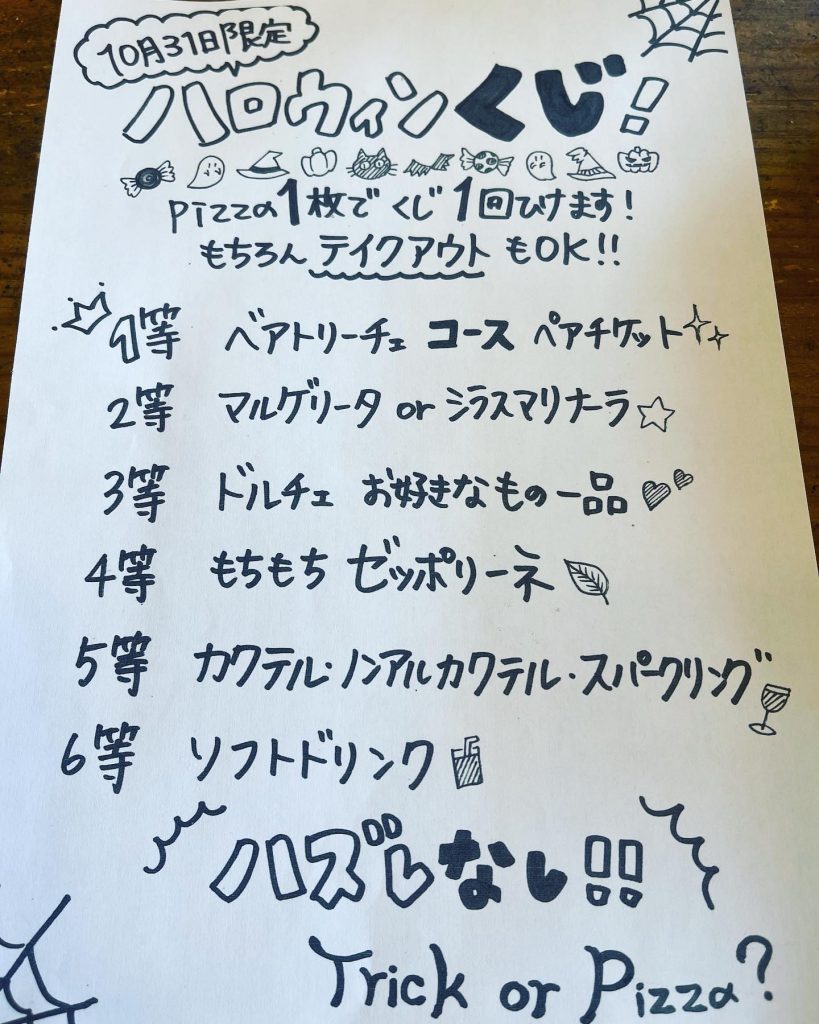 10月31日限定
ハロウィンくじ!
pizza1枚でくじ1回ひけます!
もちろん テイクアウト もOK!!
1等 ベアトリーチェ コース ペアチケット
2等 マルゲリータ or シラスマリナーラ
3等 ドルチェ お好きなもの一品
4等 もちもち ゼッポリーネ
5等 カクテル・ノンアルカクテル・スパークリング
6等 ソフトドリンク
ハズレなし!!
Trick or Pizza?